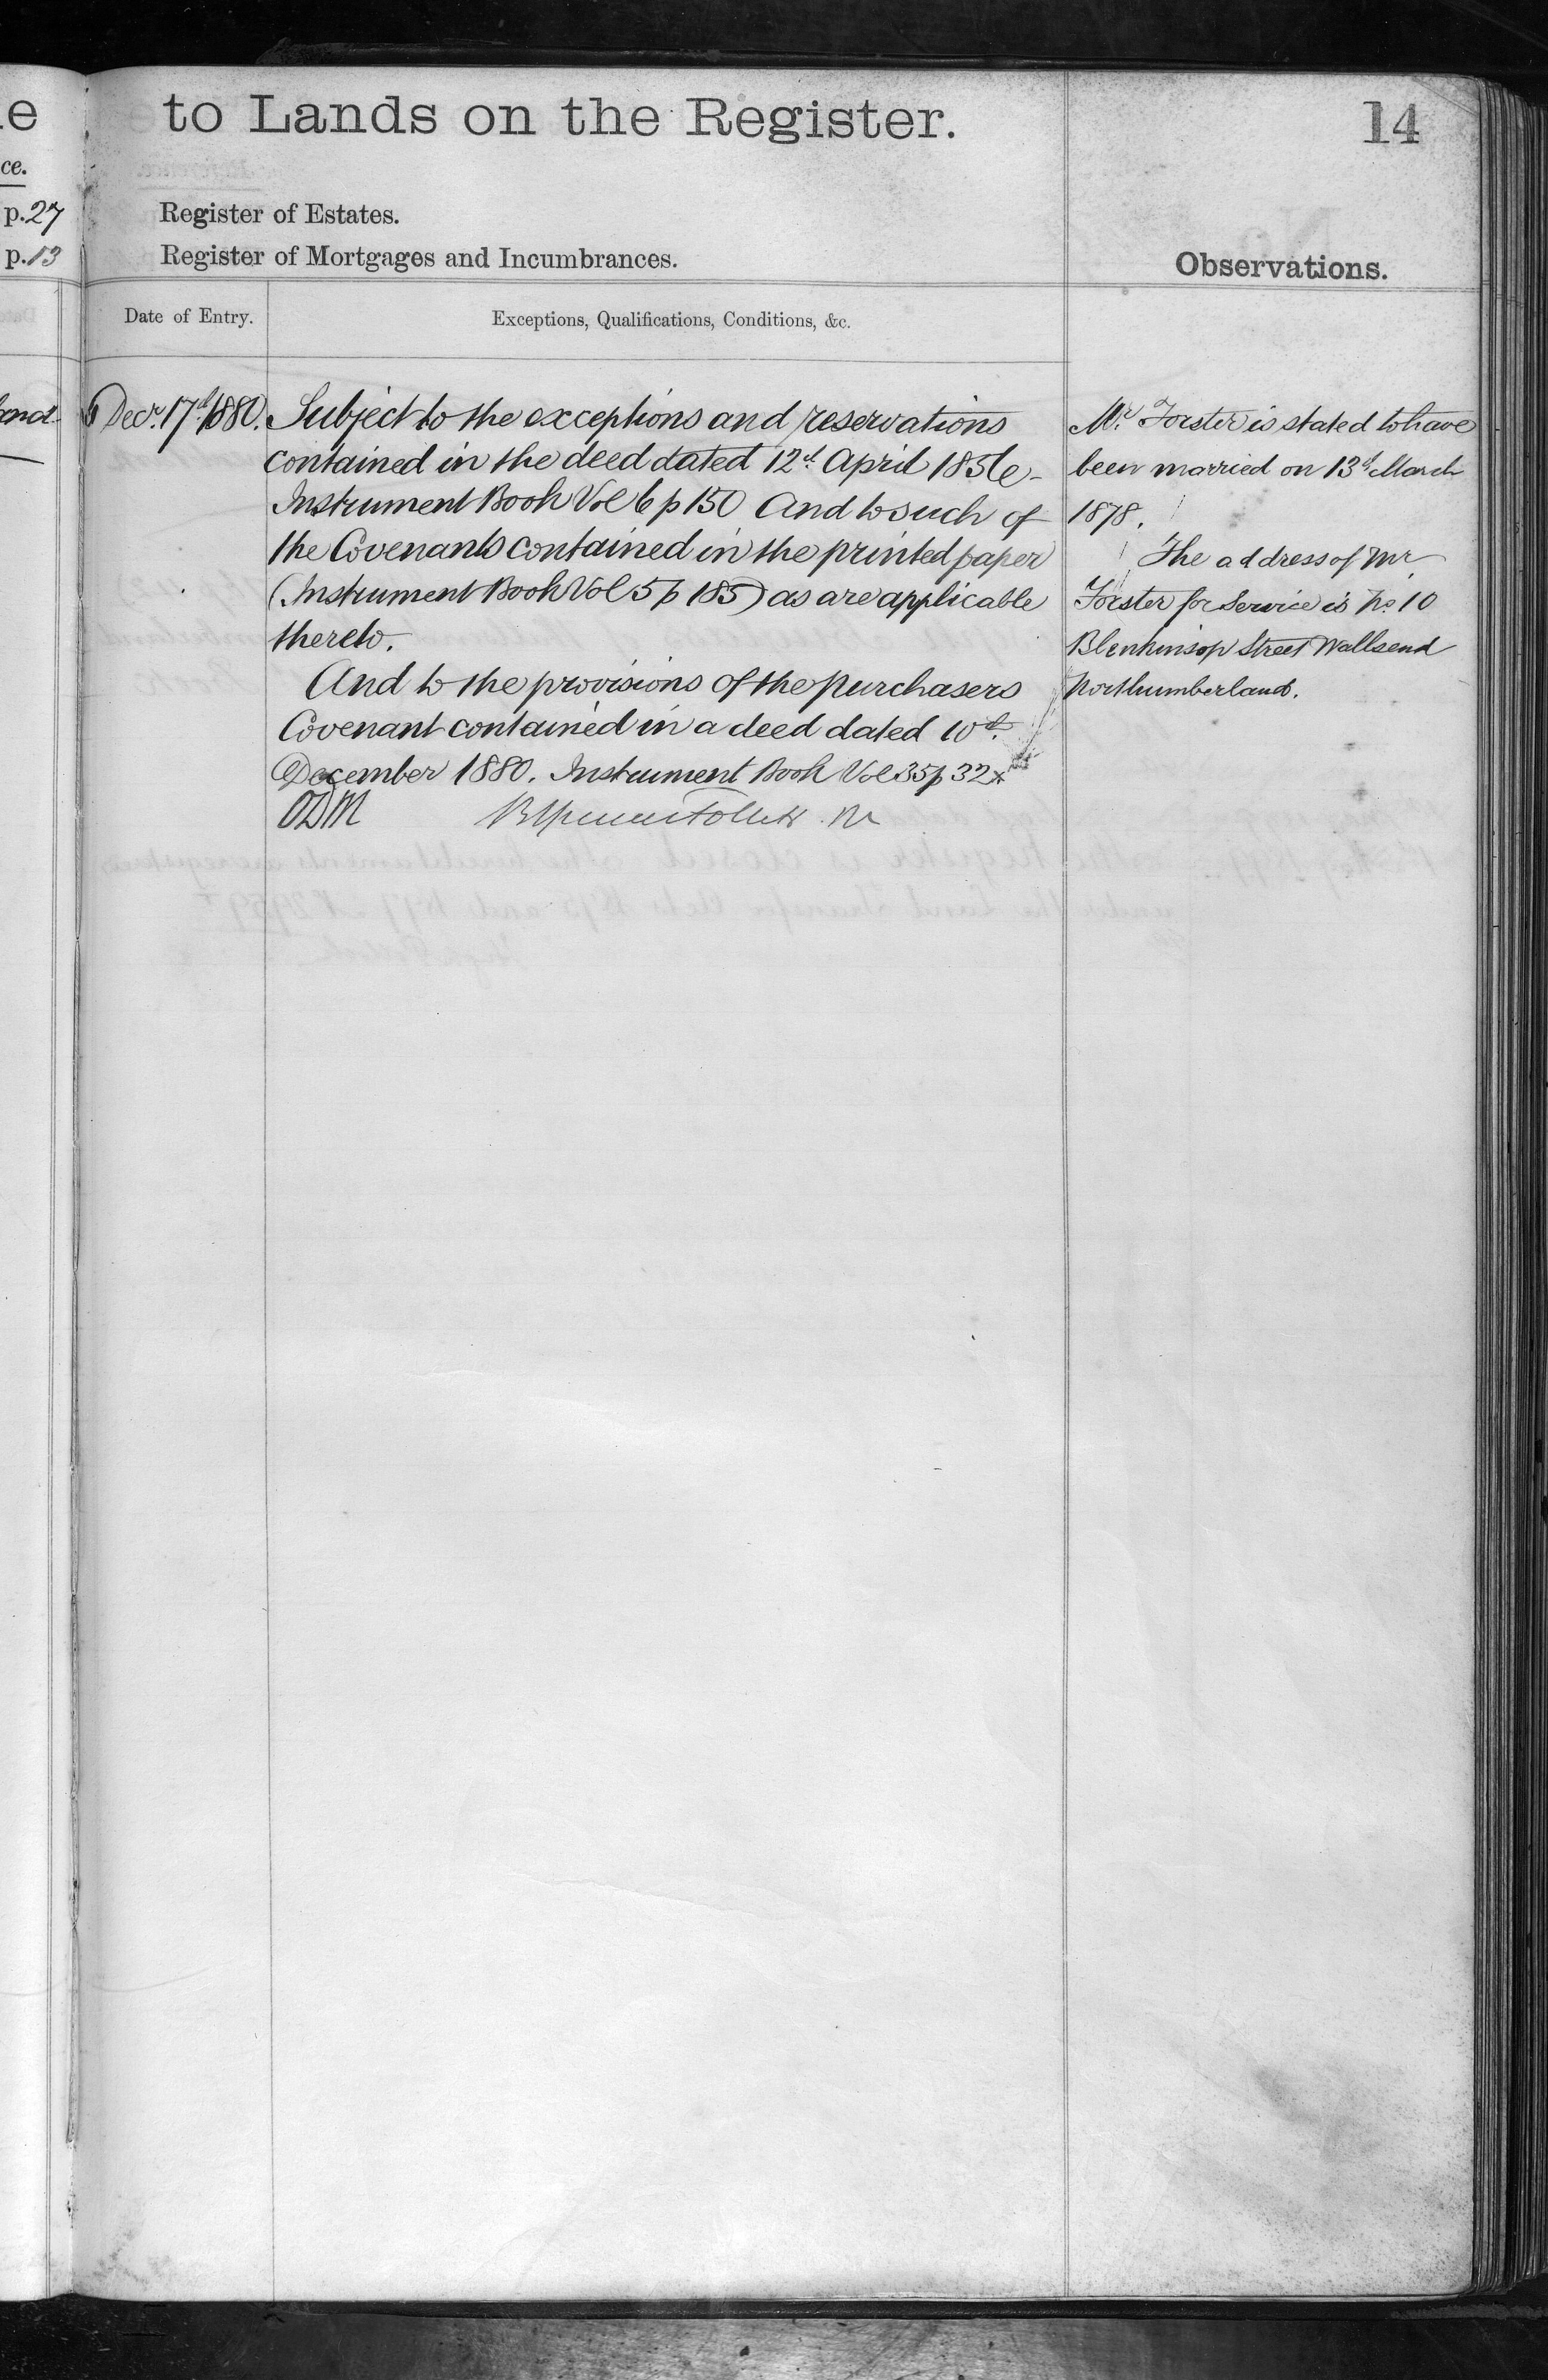 e
to Lands on the Register.
14
ce.
p. 27
Register of Estates.
p. 13
Register of Mortgages and Incumbrances.
Observations.
Date of Entry.
Exceptions, Qualifications, Conditions, &c.
Decr. 17th 1880.
Subject to the exceptions and reservations
contained in the deed dated 12th April 1856
Instrument Book Vol 6 p 150 And to such of
the Covenants contained in the printed paper
(Instrument Book Vol 5 p 185) as are applicable
thereto.
And to the provisions of the purchasers
Covenant contained in a deed dated 10th
December 1880. Instrument Book Vol 35 p 32
ODM
Mr. Forster is stated to have
been married on 13th March
1878.
The address of Mr
Forster for Service is No 10
Blenkinsop Street Wallsend
Northumberland.